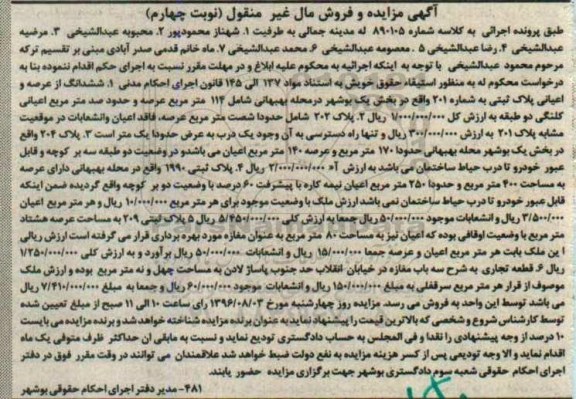 آگهی مزایده و فروش مال غیر منقول (نوبت چهارم)
طبق پرونده اجرائی به کلاسه شماره ۸۹۰۱۰۵ له مدینه جمالی به طرفیت ۱. شهناز محمودپور ۲. محبوبه عبدالشیخی ۳. مرضیه
عبدالشیخی ۴. رضا عبدالشیخی ۵. معصومه عبدالشیخی ۶. محمد عبدالشیخی ۷. ماه خانم قدمی صدر آبادی مبنی بر تقسیم ترکه
مرحوم محمود عبدالشیخی با توجه به اینکه اجرائیه به محکوم علیه ابلاغ و در مهلت مقرر نسبت به اجرای حکم اقدام ننموده بنا به
درخواست محکوم له به منظور استیفاء حقوق خویش به استناد مواد ۱۳۷ الی ۱۴۵ قانون اجرای احکام مدنی ۱. ششدانگ از عرصه و
اعیانی پلاک ثبتی به شماره ۲۰۱ واقع در بخش یک بوشهر درمحله بهبهانی شامل ۱۱۴ متر مربع عرصه و حدود صد متر مربع اعیانی
کلنگی دو طبقه به ارزش کل ۱/۰۰۰/۰۰۰/۰۰۰ ریال ۲. پلاک ۲۰۲ شامل حدودا شصت متر مربع عرصه، فاقد اعیان وانشعابات در موقعیت
مشابه پلاک ۲۰۱ به ارزش ۳۰۰/۰۰۰/۰۰۰ ریال و تنها راه دسترسی به آن وجود یک درب به عرض حدودا یک متر است ۳. پلاک ۲۰۴ واقع
در بخش یک بوشهر محله بهبهانی حدودا ۱۷۰ متر مربع و عرصه ۱۴۰ متر مربع اعیان می باشدو در وضعیت دو طبقه سه بر کوچه و قابل
عبور خودرو تا درب حیاط ساختمان می باشد به ارزش ۲/۰۰۰/۰۰۰/۰۰۰ ریال ۴. پلاک ثبتی ۱۹۹۰ واقع در محله بهبهانی دارای عرصه
به مساحت ۴۰۰ متر مربع و حدودا ۲۵۰ متر مربع اعیان نیمه کاره با پیشرفت ۶۰ درصد با وضعیت دو بر کوچه واقع گردیده ضمن اینکه
قابل عبور خودرو تا درب حیاط ساختمان نمی باشد ارزش ملک با وضعیت موجود برای هر متر مربع ۱۰/۰۰۰/۰۰۰ ریال و هر متر مربع اعیان
۳/۵۰۰/۰۰۰ ریال و انشعابات موجود ۵۰/۰۰۰/۰۰۰ ریال جمعا به ارزش کلی ۵/۴۵۰/۰۰۰/۰۰۰ ریال ۵ پلاک ثبتی ۲۰۹ به مساحت عرصه هشتاد
متر مربع با وضعیت اوقافی بوده که اعیان نیز به مساحت ۸۰ متر مربع به عنوان مغازه مورد بهره برداری قرار می گرفته است ارزش ریالی
این ملک بابت هر متر مربع اعیان و عرصه جمعا ۱۵/۰۰۰/۰۰۰ ریال و انشعابات ۵۰/۰۰۰/۰۰۰ ریال برآورد و به ارزش کلی ۱/۲۵۰/۰۰۰/۰۰۰
ریال ۶. قطعه تجاری به شرح سه باب مغازه در خیابان انقلاب حد جنوب پاساژ لادن به مساحت چهل و نه متر مربع بوده و ارزش ملک
موصوف از قرار هر متر مربع سرقفلی به مبلغ ۱۵۰/۰۰۰/۰۰۰ ریال و انشعابات موجود ۶۰/۰۰۰/۰۰۰ ریال و جمعا به مبلغ ۷/۴۱۰/۰۰۰/۰۰۰ ریال
می باشد توسط این واحد به فروش می رسد. مزایده روز چهارشنبه مورخ ۱۳۹۶/۰۸/۰۳ رای ساعت ۱۰ الی ۱۱ صبح از مبلغ تعیین شده
توسط کارشناس شروع و شخصی که بالاترین قیمت را پیشنهاد نماید به عنوان برنده مزایده شناخته خواهد شد و برنده مزایده می بایست
۱۰ درصد از وجه پیشنهادی را نقدا و فی المجلس به حساب دادگستری تودیع نماید و نسبت به مابقی آن حداکثر ظرف متوفی یک ماه
اقدام نماید و الا وجه تودیعی پس از کسر هزینه مزایده به نفع دولت ضبط خواهد شد علاقمندان می توانند در وقت مقرر فوق در دفتر
اجرای احکام حقوقی شعبه سوم دادگستری بوشهر جهت برگزاری مزایده حضور یابند.
۴۸۱- مدیر دفتر اجرای احکام حقوقی بوشهر